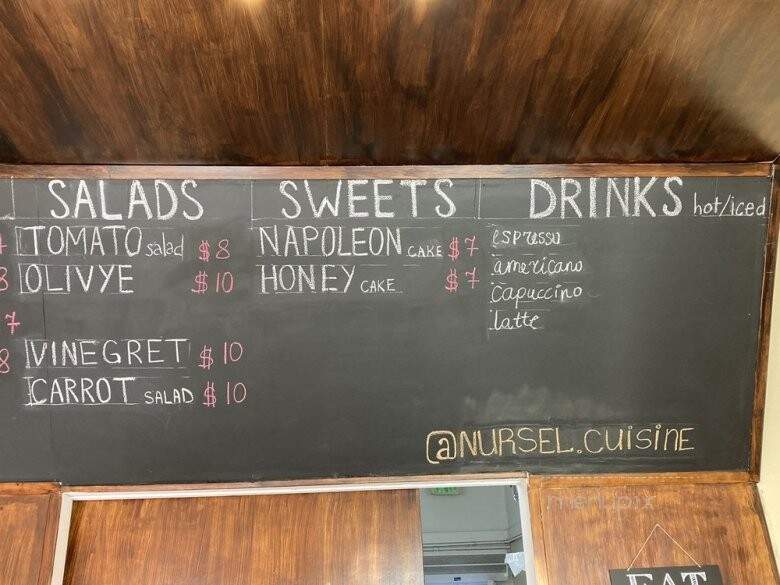 SALADS
TOMATO salad $8
OLIVYE $10
7
8
VINEGRET $10
CARROT SALAD $10
SWEETS
NAPOLEON CAKE $7
HONEY CAKE $7
DRINKS hot/iced
espresso
americano
capuccino
latte
@NURSEL.CUISINE
menupix
EAT